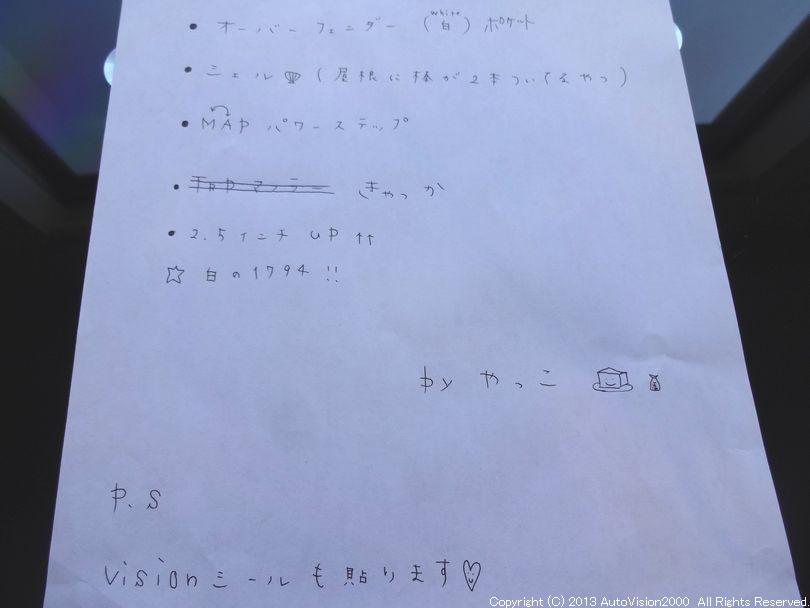 white
• オーバーフェンダー (白) ポケット
• シェル (屋根に棒が2本ついてるやつ)
• MAP パワーステップ
• きゃっか
• 2.5インチ UP ↑↑
☆ 白の1794 !!
by やっこ
P.S
Visionミールも貼ります♡
Copyright (C) 2013 AutoVision2000 All Rights Reserved.